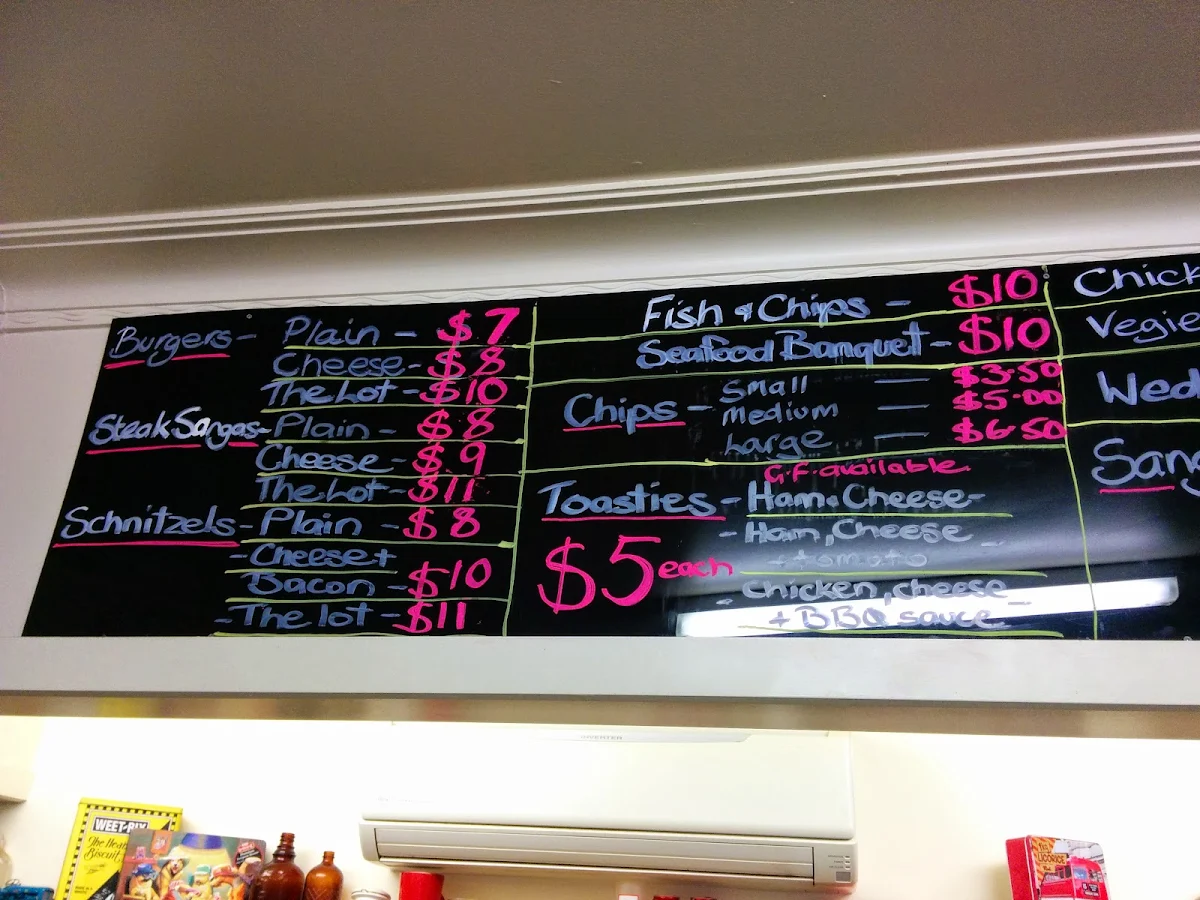 Burgers - Plain - $7
Cheese - $8
The Lot - $10
Steak Sangas - Plain - $8
Cheese - $9
The Lot - $11
Schnitzels - Plain - $8
- Cheese +
Bacon - $10
- The lot - $11
Fish & Chips - $10
Seafood Banquet - $10
Chips - Small — $3.50
Medium — $5.00
Large — $6.50
G.F. available
Toasties - Ham & Cheese -
- Ham, Cheese -
+ tomato
$5 each
- Chicken, cheese -
+ BBQ sauce
Chick
Vegie
Wed
Sang
INVERTER
WEET-BIX
LICORICE